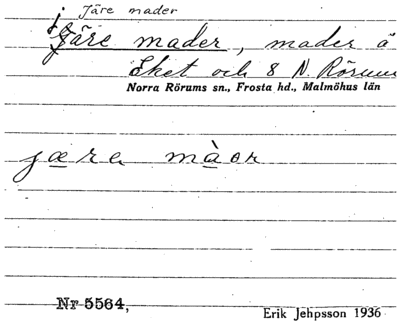 Järe mader
j
Järe mader, mader å
Eket och 8 N. Rörum
Norra Rörums sn., Frosta hd., Malmöhus län
jære màər
Nr 5564,
Erik Jehpsson 1936